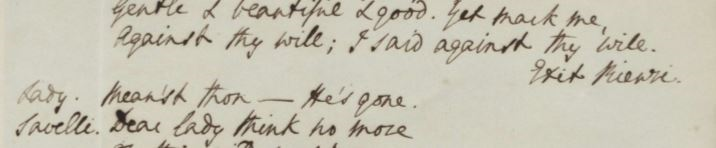 Gentle & beautiful & good. Yet mark me,
Against thy will; I said against thy will.
Exit Rienzi.
Lady. Mean'st thou — He's gone.
Savelli. Dear lady think no more